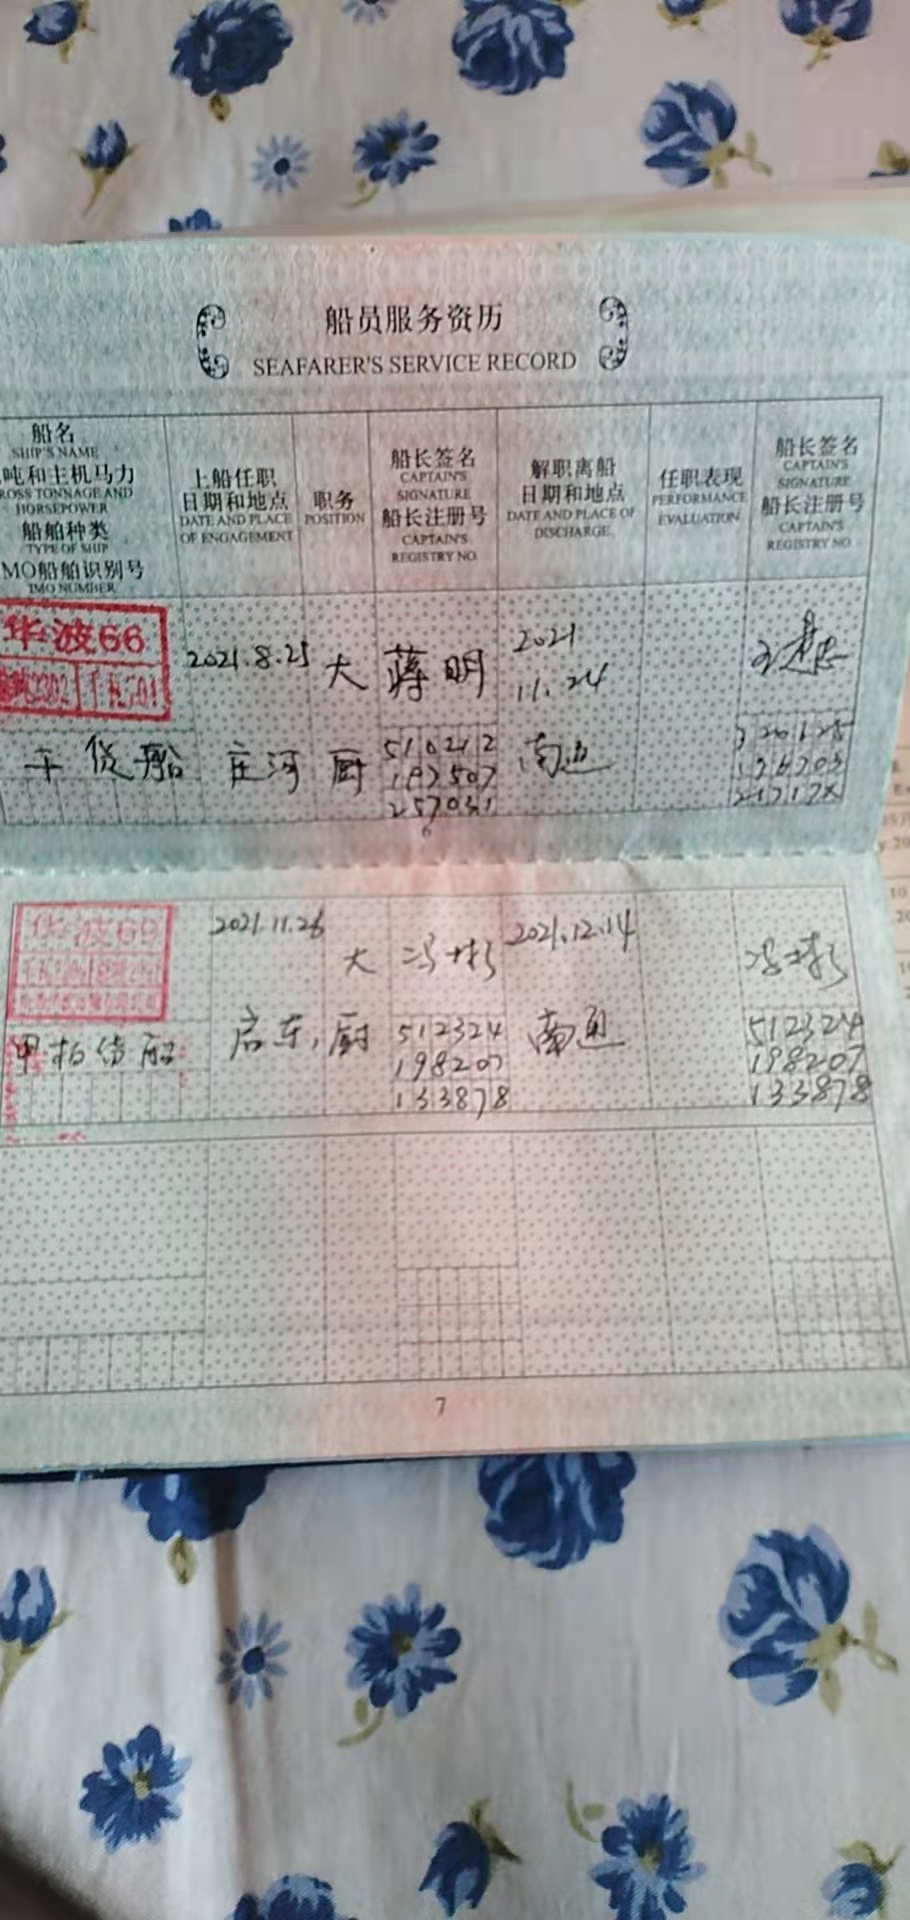 船员服务资历
SEAFARER'S SERVICE RECORD
船名
SHIP'S NAME
吨和主机马力
ROSS TONNAGE AND
HORSEPOWER
船舶种类
TYPE OF SHIP
MO船舶识别号
IMO NUMBER
上船任职
日期和地点
DATE AND PLACE
OF ENGAGEMENT
职务
POSITION
船长签名
CAPTAIN'S
SIGNATURE
船长注册号
CAPTAIN'S
REGISTRY NO.
解职离船
日期和地点
DATE AND PLACE OF
DISCHARGE
任职表现
PERFORMANCE
EVALUATION
船长签名
CAPTAIN'S
SIGNATURE
船长注册号
CAPTAIN'S
REGISTRY NO
华波66
干货船
2021.8.25
庄河
大
厨
蒋明
510212
197507
257031
2021
11.24
南通
6
华波69
甲板货船
2021.11.26
启东,
大
厨
512324
198207
133878
2021.12.14
南通
512324
198207
133878
7